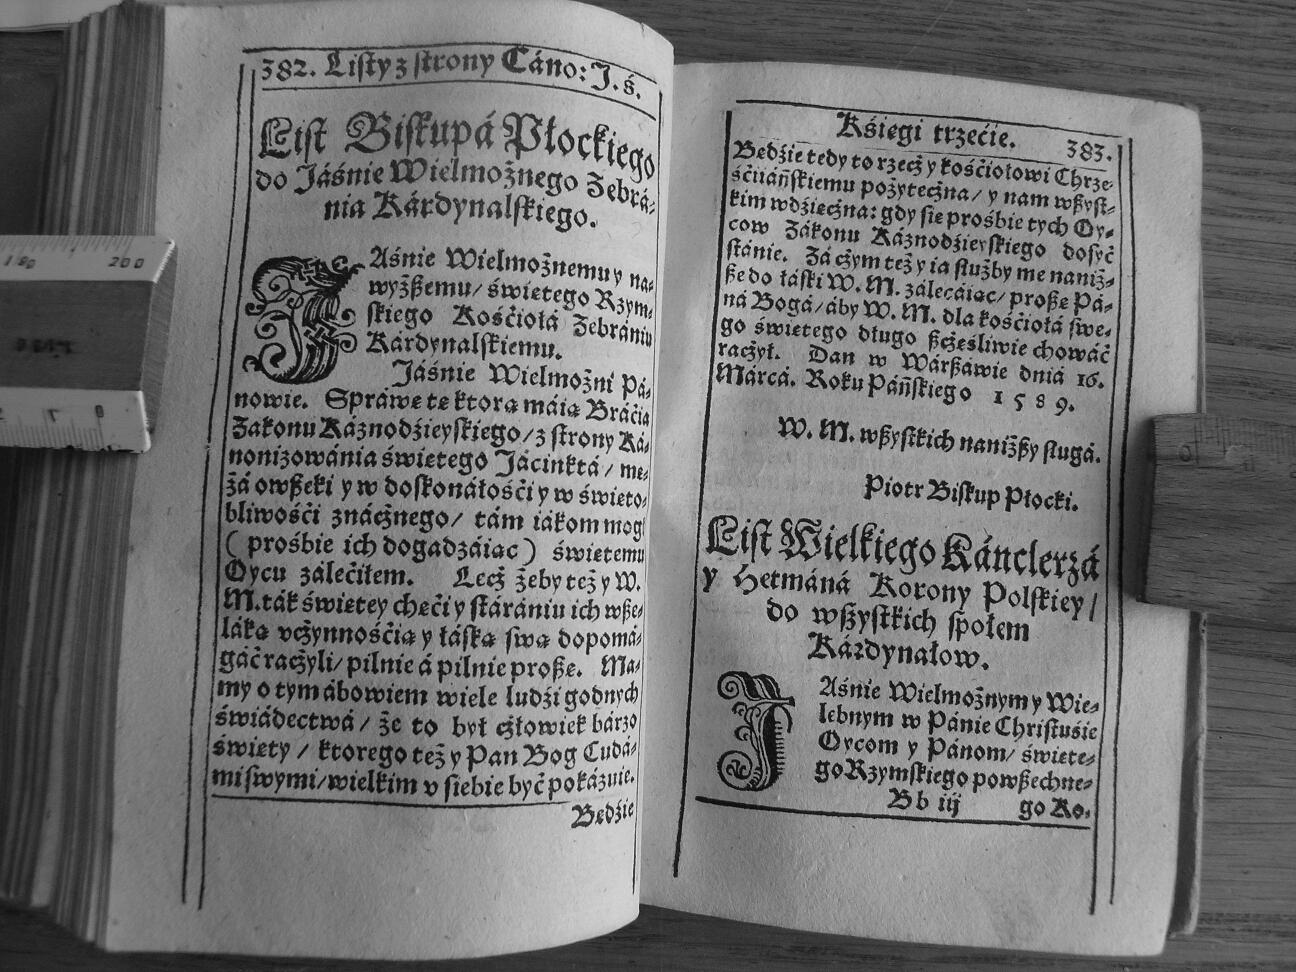 382. Listy z strony Cáno: J. ś.
List Biskupá Płockiego
do Jáśnie Wielmożnego Zebrá-
nia Kárdynalskiego.
JAśnie Wielmożnemu y na-
wyżßemu/ świętego Rzym-
skiego Kośćiołá Zebrániu
Kárdynalskiemu.
Jáśnie Wielmożni Pá-
nowie. Spráwę tę ktorą máią Bráćia
Zakonu Káznodźieyskiego/ z strony Ká-
nonizowánia świętego Jácinktá/ mę-
żá owßeki y w doskonáłośći y w święto-
bliwośći znácżnego/ tám iákom mogł
( prośbie ich dogadzáiąc ) świętemu
Oycu zálećiłem. Lecż żeby też y W.
M. ták świętey chęći y stárániu ich wße-
láką vcżynnośćią y łáską swą dopomá-
gáć racżyli/ pilnie á pilnie proßę. Má-
my o tym ábowiem wiele ludźi godnych
świádectwá/ że to był cżłowiek bárzo
święty / ktorego też y Pan Bog Cudá-
mi swymi/ wielkim v siebie być pokázuie.
Będźie
Kśięgi trzećie. 383.
Będźie tedy to rzecż y kośćiołowi Chrze-
śćiiáńskiemu pożytecżna/ y nam wßyst-
kim wdźięcżna: gdy się prośbie tych Oy-
cow Zakonu Káznodźieyskiego dosyć
stánie. Zá cżym też y ia służby me naniż-
ße do łáski W. M. zálecáiąc/ proßę Pá-
ná Bogá/ áby W. M. dla kośćiołá swe-
go świętego długo ßcżęśliwie chowáć
racżył. Dan w Wárßáwie dniá 16.
Márcá. Roku Páńskiego 1589.
W. M. wßystkich naniżßy sługá.
Piotr Biskup Płocki.
List Wielkiego Kánclerzá
y Hetmáná Korony Polskiey/
do wßystkich społem
Kárdynałow.
JAśnie Wielmożnym y Wie-
lebnym w Pánie Christusie
Oycom y Pánom/ święte-
go Rzymskiego powßechne-
Bb iij go Ko-